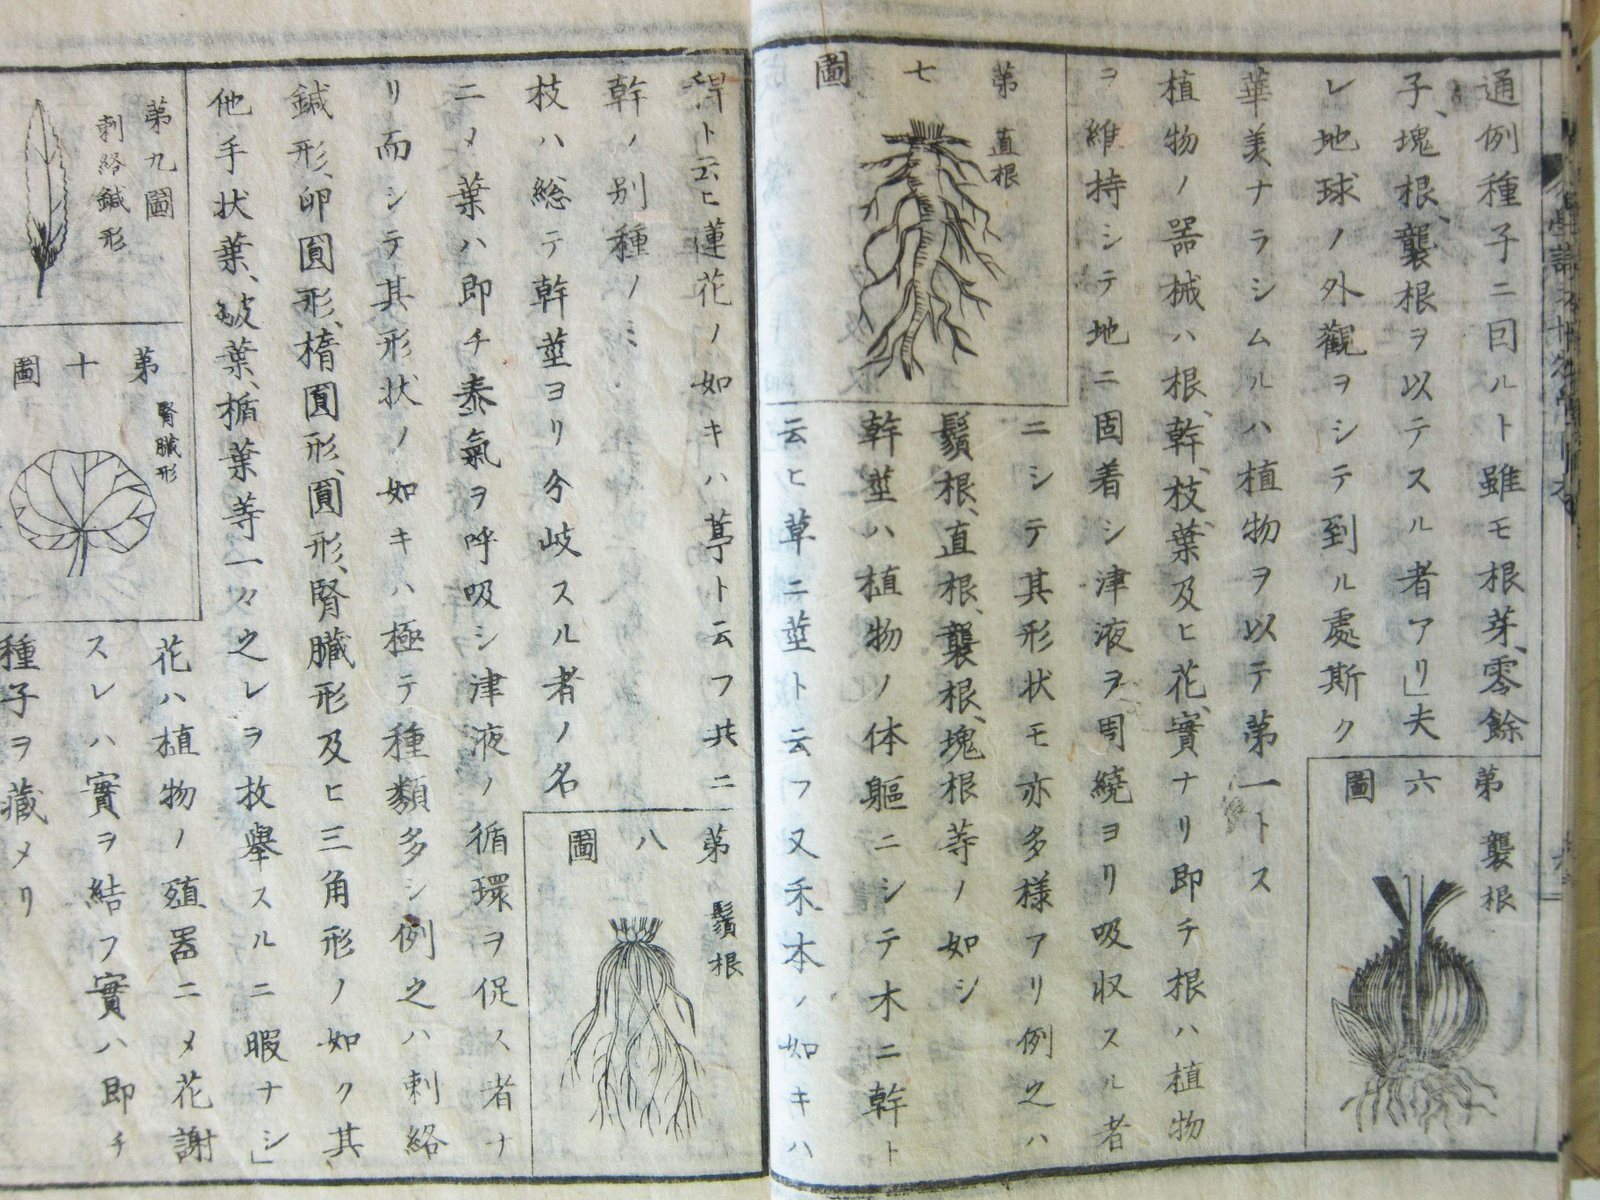 通例種子ニ回ルト雖モ根芽、零餘
子、塊根、襲根ヲ以テスル者アリ」夫
レ地球ノ外觀ヲシテ到ル處斯ク
華美ナラシムルハ植物ヲ以テ第一トス
植物ノ器械ハ根、幹、枝、葉及ヒ花、實ナリ即チ根ハ植物
ヲ維持シテ地ニ固着シ津液ヲ周繞ヨリ吸收スル者
ニシテ其形状モ亦多樣アリ例之ハ
鬚根、直根、襲根、塊根等ノ如シ
幹莖ハ植物ノ体軀ニシテ木ニ幹ト
云ヒ草ニ莖ト云フ又禾本ノ如キハ
第六圖
襲根
第七圖
直根
稈ト云ヒ蓮花ノ如キハ葶ト云フ共ニ
幹ノ別種ノミ
枝ハ総テ幹莖ヨリ分岐スル者ノ名
ニノ葉ハ即チ泰氣ヲ呼吸シ津液ノ循環ヲ促ス者ナ
リ而シテ其形状ノ如キハ極テ種類多シ例之ハ刺絡
鍼形、卵圓形、楕圓形、圓形、腎臓形及ヒ三角形ノ如ク其
他手状葉、皱葉、楯葉等一々之レヲ枚擧スルニ暇ナシ」
花ハ植物ノ殖器ニメ花謝
スレハ實ヲ結フ實ハ即チ
種子ヲ藏メリ
第八圖
鬚根
第九圖
刺絡鍼形
第十圖
腎臓形